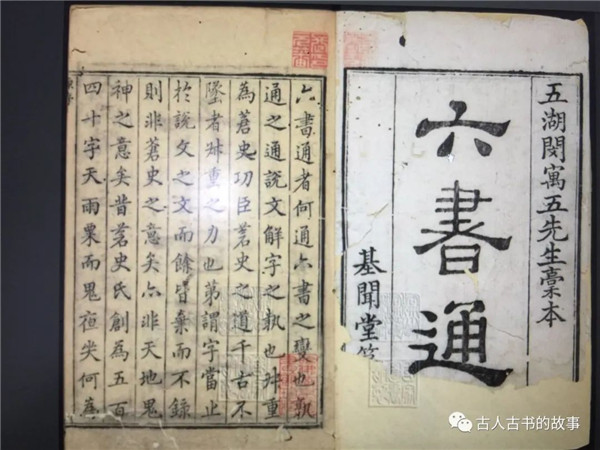 五湖閔寓五先生稾本
六書通
基聞堂
六書通者何通六書之變也執
通之通說文解字之執也叔重
為蒼史功臣蒼史之道千古不
墜者叔重之力也第謂字當止
於說文之文而餘皆棄而不錄
則非蒼史之意矣亦非天地鬼
神之意矣昔蒼史氏創為五百
四十字天雨粟而鬼夜哭何
古人古书的故事